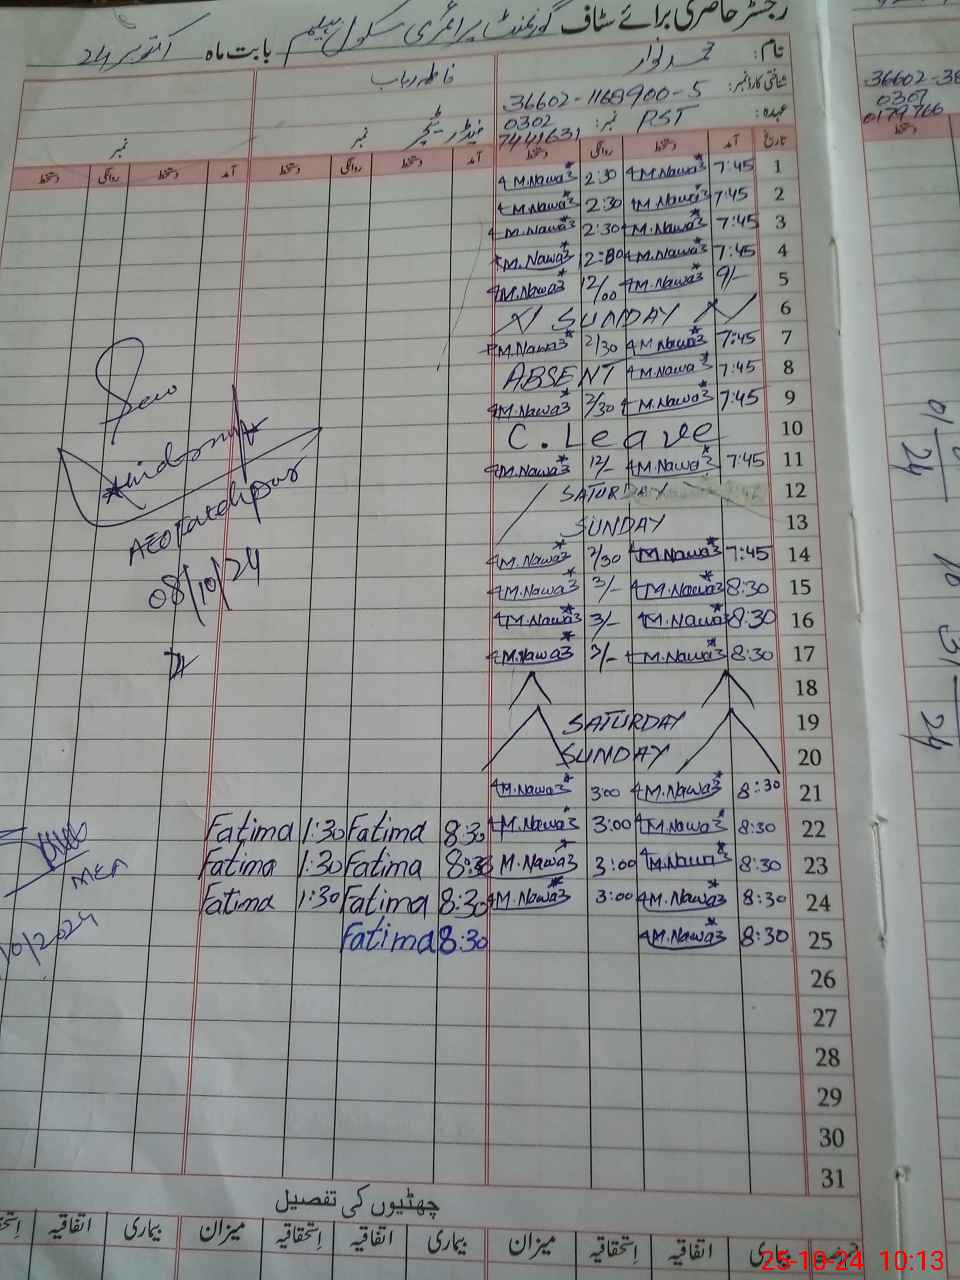 رجسٹر حاضری برائے سٹاف گورنمنٹ پرائمری سکول بابت ماہ اکتوبر 24
نام: محمد نواز
شناختی کارڈ نمبر: 36602-1168900-5
عہدہ: PST نمبر: 0302
7441631
فاطمہ رباب
نمبر
نمبر
تاریخ آمد دستخط روانگی دستخط آمد دستخط روانگی دستخط آمد دستخط روانگی دستخط
1 7:45 M.Nawaz 2:30 M.Nawaz
2 7:45 M.Nawaz 2:30 M.Nawaz
3 7:45 M.Nawaz 2:30 M.Nawaz
4 7:45 M.Nawaz M.Nawaz
5 9/- M.Nawaz 12/00 M.Nawaz
6 SUNDAY
7 7:45 M.Nawaz 2/30 M.Nawaz
8 7:45 M.Nawaz ABSENT
9 7:45 M.Nawaz 2/30 M.Nawaz
10 C. Leave
11 7:45 M.Nawaz 12/- M.Nawaz
12 SATURDAY
13 SUNDAY
14 7:45 M.Nawaz 2/30 M.Nawaz
15 8:30 M.Nawaz 3/- M.Nawaz
16 8:30 M.Nawaz 3/- M.Nawaz
17 8:30 M.Nawaz 3/- M.Nawaz
18
19 SATURDAY
20 SUNDAY
21 8:30 M.Nawaz 3:00 M.Nawaz
22 8:30 M.Nawaz 3:00 M.Nawaz 8:30 Fatima 1:30 Fatima
23 8:30 M.Nawaz 3:00 M.Nawaz 8:30 Fatima 1:30 Fatima
24 8:30 M.Nawaz 3:00 M.Nawaz 8:30 Fatima 1:30 Fatima
25 8:30 M.Nawaz 8:30 Fatima
26
27
28
29
30
31
AEO Fatehpur
08/10/24
MEA
10/2024
چھٹیوں کی تفصیل
بیماری اتفاقیہ اِستحقاقیہ میزان بیماری اتفاقیہ اِستحقاقیہ میزان بیماری اتفاقیہ
36602-38
0307
0179766
دستخط
24
24
25-10-24 10:13